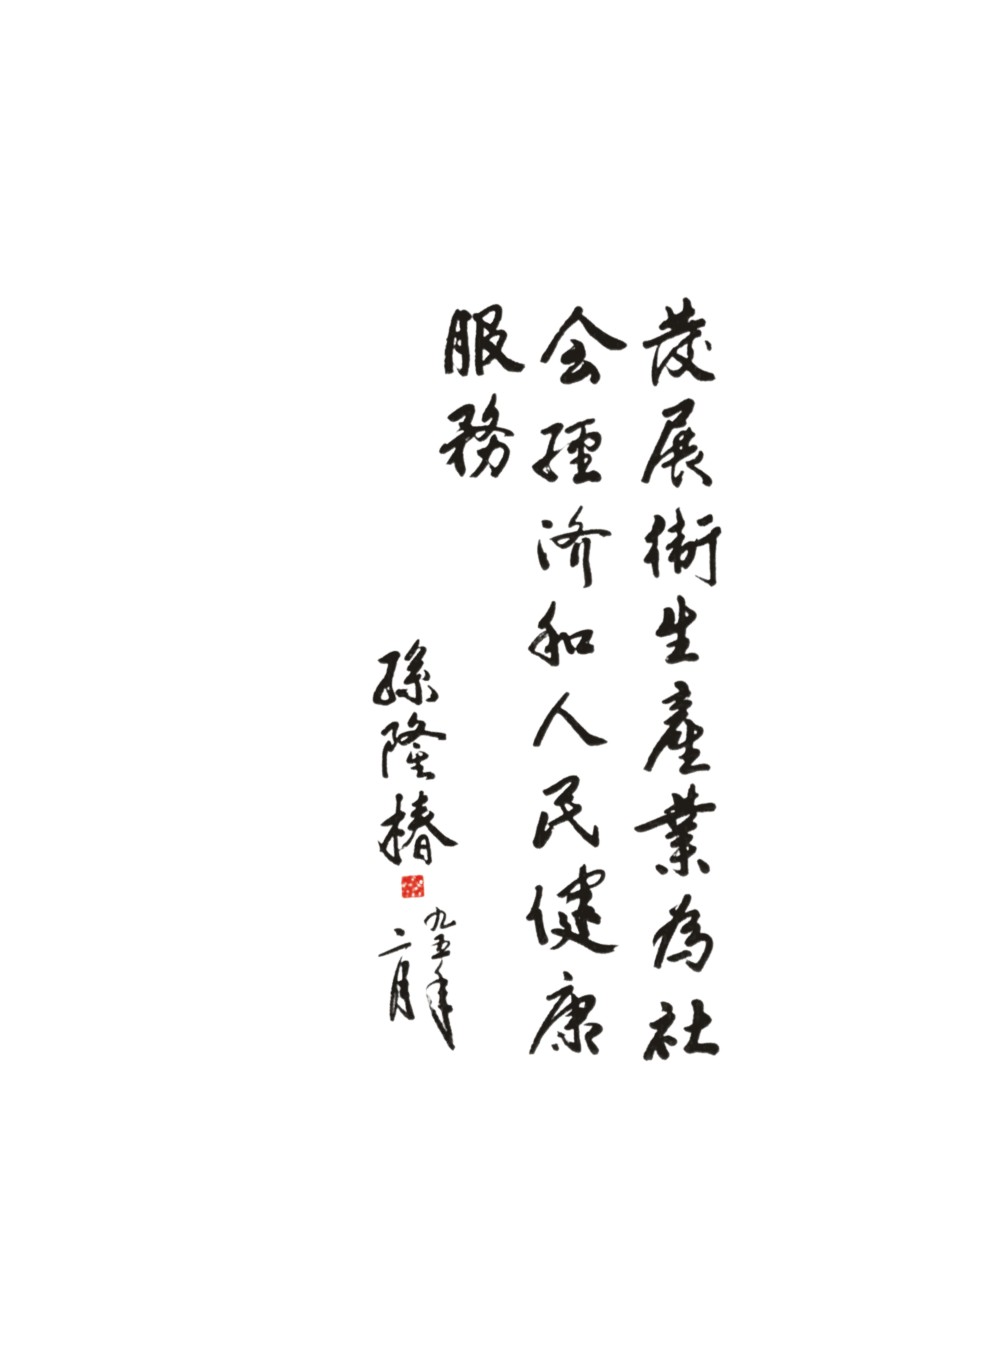 发展衛生產業為社
会經济和人民健康
服務
孫隆椿
九五年
二月